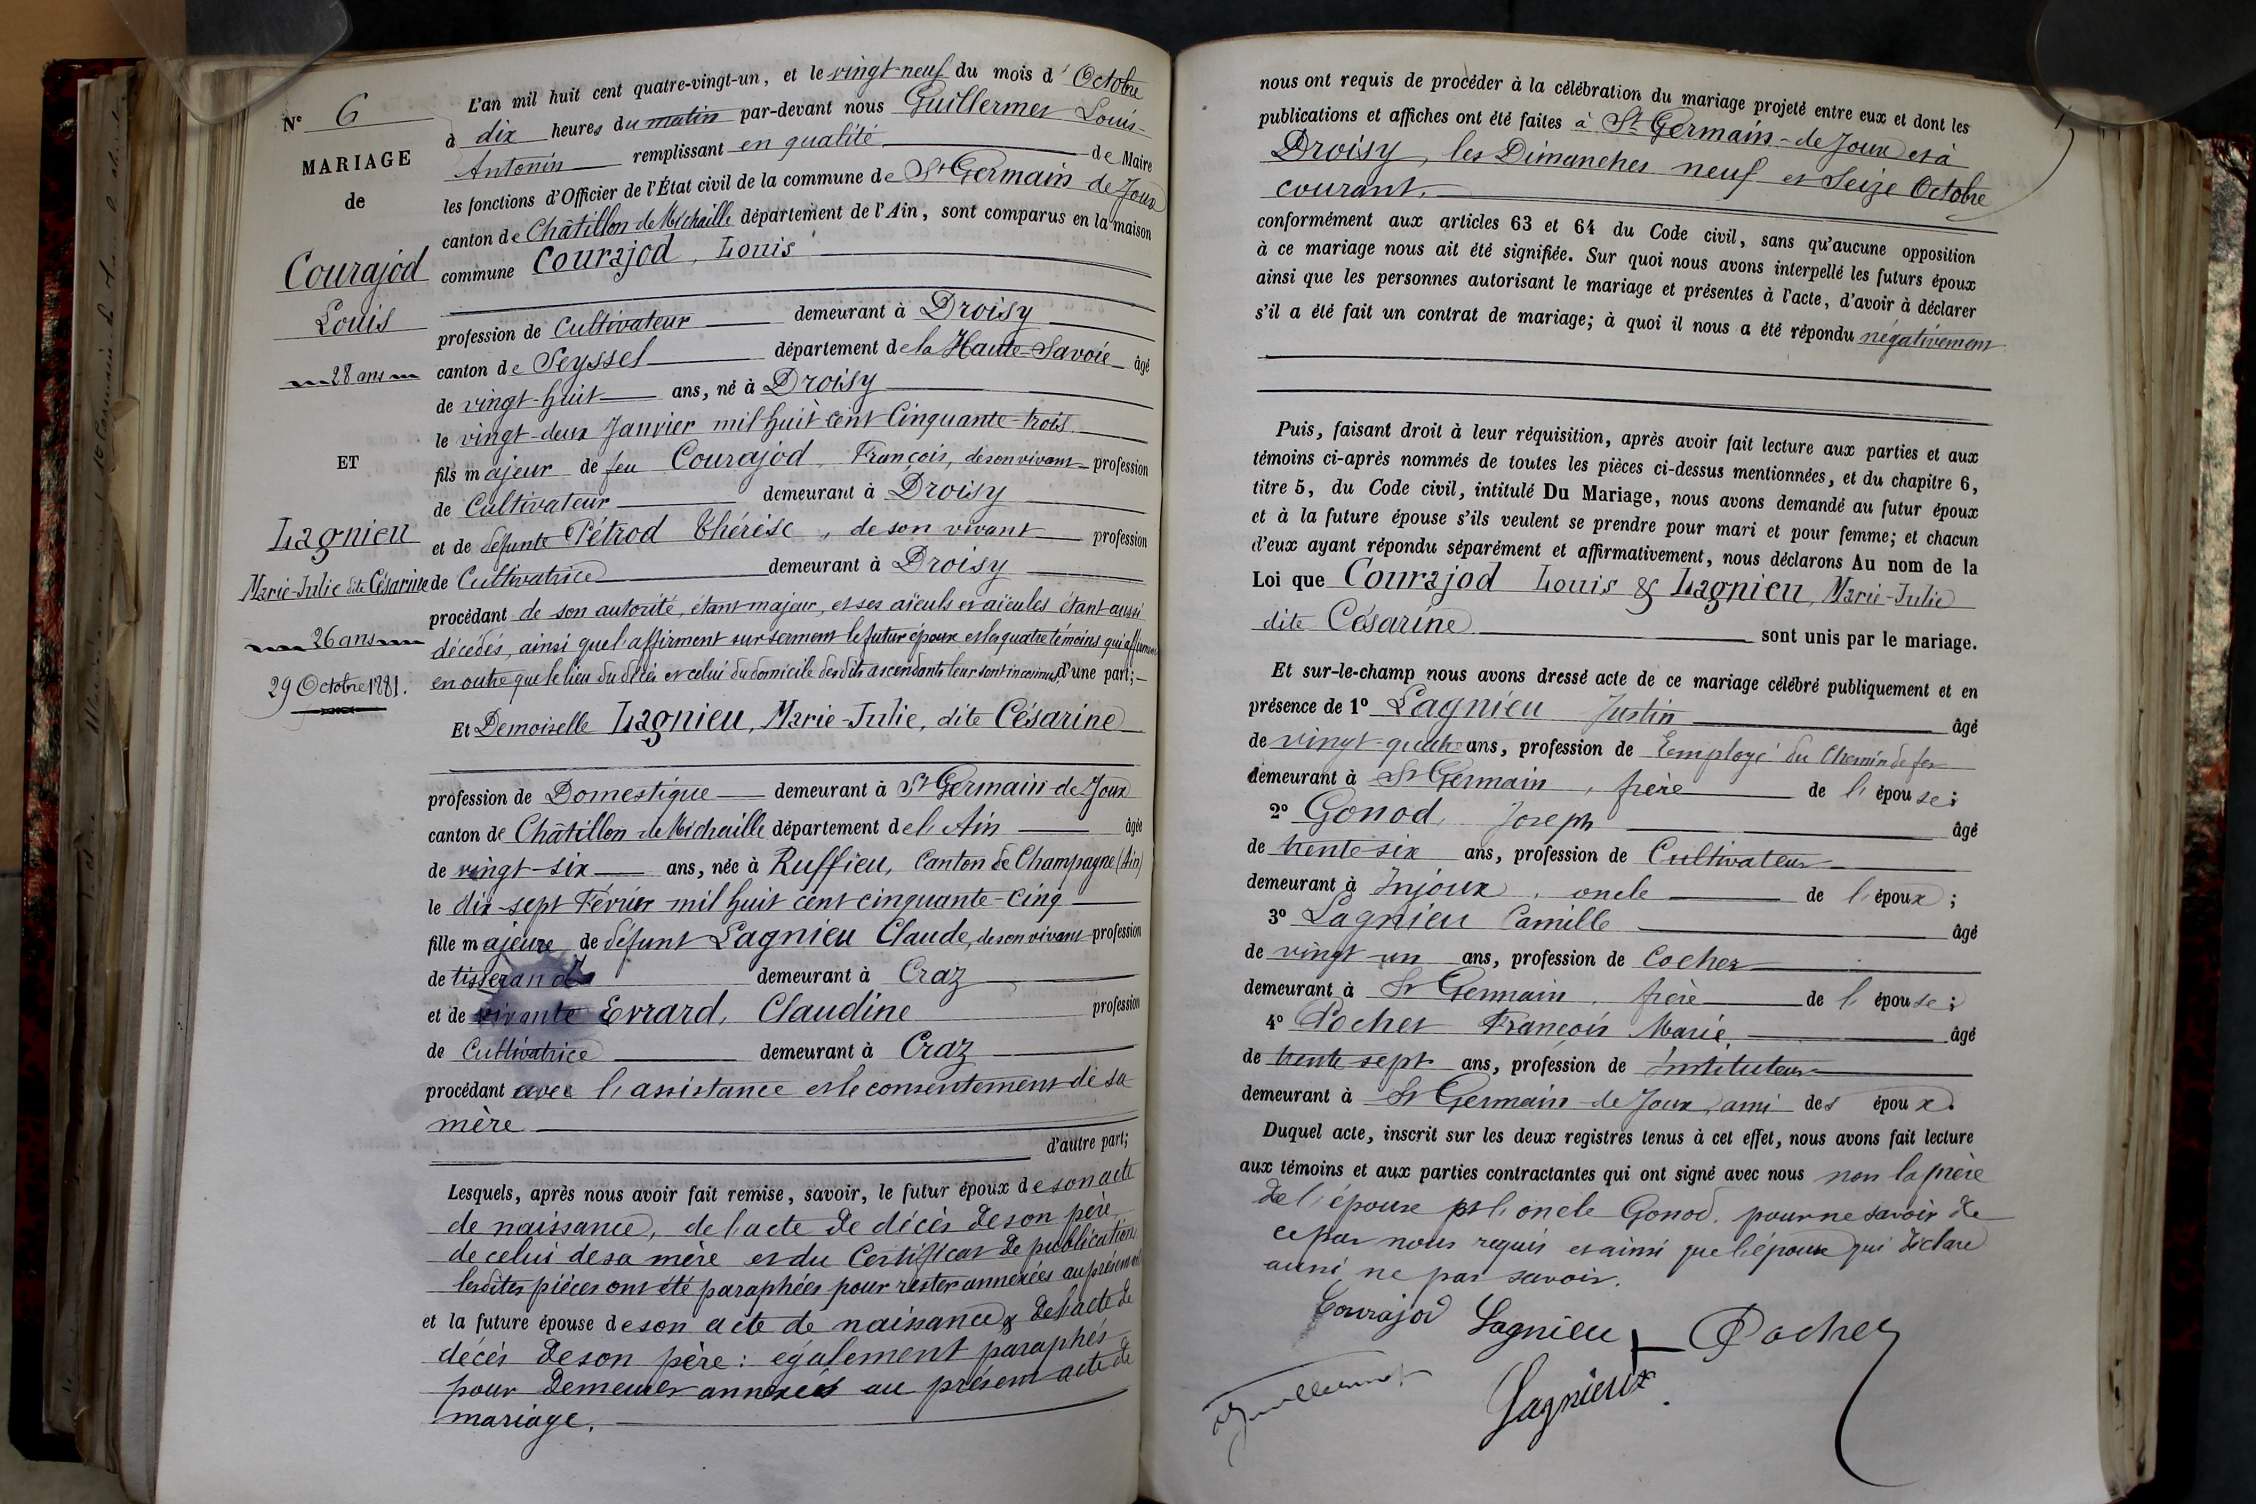 N° 6
MARIAGE
de
Courajod
Louis
28 ans
ET
Lagnieu
Marie-Julie dite Césarine
26 ans
29 Octobre 1881.
L'an mil huit cent quatre-vingt-un, et le vingt-neuf du mois d'Octobre
à dix heures du matin par-devant nous Guillermet Louis-
Antonin remplissant en qualité de Maire
les fonctions d'Officier de l'État civil de la commune de St Germain de Joux
canton de Châtillon de Michaille département de l'Ain, sont comparus en la maison
commune Courajod, Louis
profession de Cultivateur demeurant à Droisy
canton de Seyssel département de la Haute-Savoie âgé
de vingt-huit ans, né à Droisy
le vingt-deux Janvier mil huit cent Cinquante-trois
fils majeur de feu Courajod, François, de son vivant profession
de Cultivateur demeurant à Droisy
et de défunte Pétrod Thérèse, de son vivant profession
de Cultivatrice demeurant à Droisy
procédant de son autorité, étant majeur, et ses aïeuls et aïeules étant aussi
décédés, ainsi que l'affirment sur serment le futur époux et les quatre témoins qui affirment
en outre que le lieu du décès et celui du domicile desdits ascendants leur sont inconnus, d'une part;
Et Demoiselle Lagnieu, Marie-Julie, dite Césarine
profession de Domestique demeurant à St Germain-de-Joux
canton de Châtillon de Michaille département de l'Ain âgée
de vingt-six ans, née à Ruffieu, Canton de Champagne (Ain)
le dix-sept Février mil huit cent cinquante-cinq
fille majeure de défunt Lagnieu Claude, de son vivant profession
de tisserand demeurant à Craz
et de vivante Errard, Claudine profession
de Cultivatrice demeurant à Craz
procédant avec l'assistance et le consentement de sa
mère
d'autre part;
Lesquels, après nous avoir fait remise, savoir, le futur époux de son acte
de naissance, de l'acte de décès de son père,
de celui de sa mère et du Certificat de publication
lesdites pièces ont été paraphées pour rester annexées au présent
et la future épouse de son acte de naissance & de l'acte de
décès de son père: également paraphés
pour demeurer annexés au présent acte de
mariage.
nous ont requis de procéder à la célébration du mariage projeté entre eux et dont les
publications et affiches ont été faites à St Germain-de-Joux et à
Droisy, les Dimanches neuf et Seize Octobre
courant.
conformément aux articles 63 et 64 du Code civil, sans qu'aucune opposition
à ce mariage nous ait été signifiée. Sur quoi nous avons interpellé les futurs époux
ainsi que les personnes autorisant le mariage et présentes à l'acte, d'avoir à déclarer
s'il a été fait un contrat de mariage; à quoi il nous a été répondu négativement
Puis, faisant droit à leur réquisition, après avoir fait lecture aux parties et aux
témoins ci-après nommés de toutes les pièces ci-dessus mentionnées, et du chapitre 6,
titre 5, du Code civil, intitulé Du Mariage, nous avons demandé au futur époux
et à la future épouse s'ils veulent se prendre pour mari et pour femme; et chacun
d'eux ayant répondu séparément et affirmativement, nous déclarons Au nom de la
Loi que Courajod Louis & Lagnieu, Marie-Julie
dite Césarine sont unis par le mariage.
Et sur-le-champ nous avons dressé acte de ce mariage célébré publiquement et en
présence de 1° Lagnieu Justin âgé
de vingt-quatre ans, profession de Employé du Chemin de fer
demeurant à St Germain, frère de l'épouse;
2° Gonod, Joseph âgé
de trente-six ans, profession de Cultivateur
demeurant à Injoux, oncle de l'époux;
3° Lagnieu Camille âgé
de vingt-un ans, profession de Cocher
demeurant à St Germain, frère de l'épouse;
4° Pochet François Marie, âgé
de trente-sept ans, profession de Instituteur
demeurant à St Germain-de-Joux, ami des époux.
Duquel acte, inscrit sur les deux registres tenus à cet effet, nous avons fait lecture
aux témoins et aux parties contractantes qui ont signé avec nous non la mère
de l'épouse et l'oncle Gonod, pour ne savoir de
ce par nous requis et ainsi que l'épouse qui déclare
aussi ne pas savoir.
Courajod Lagnieu Pochet
Guillermet Lagnieux